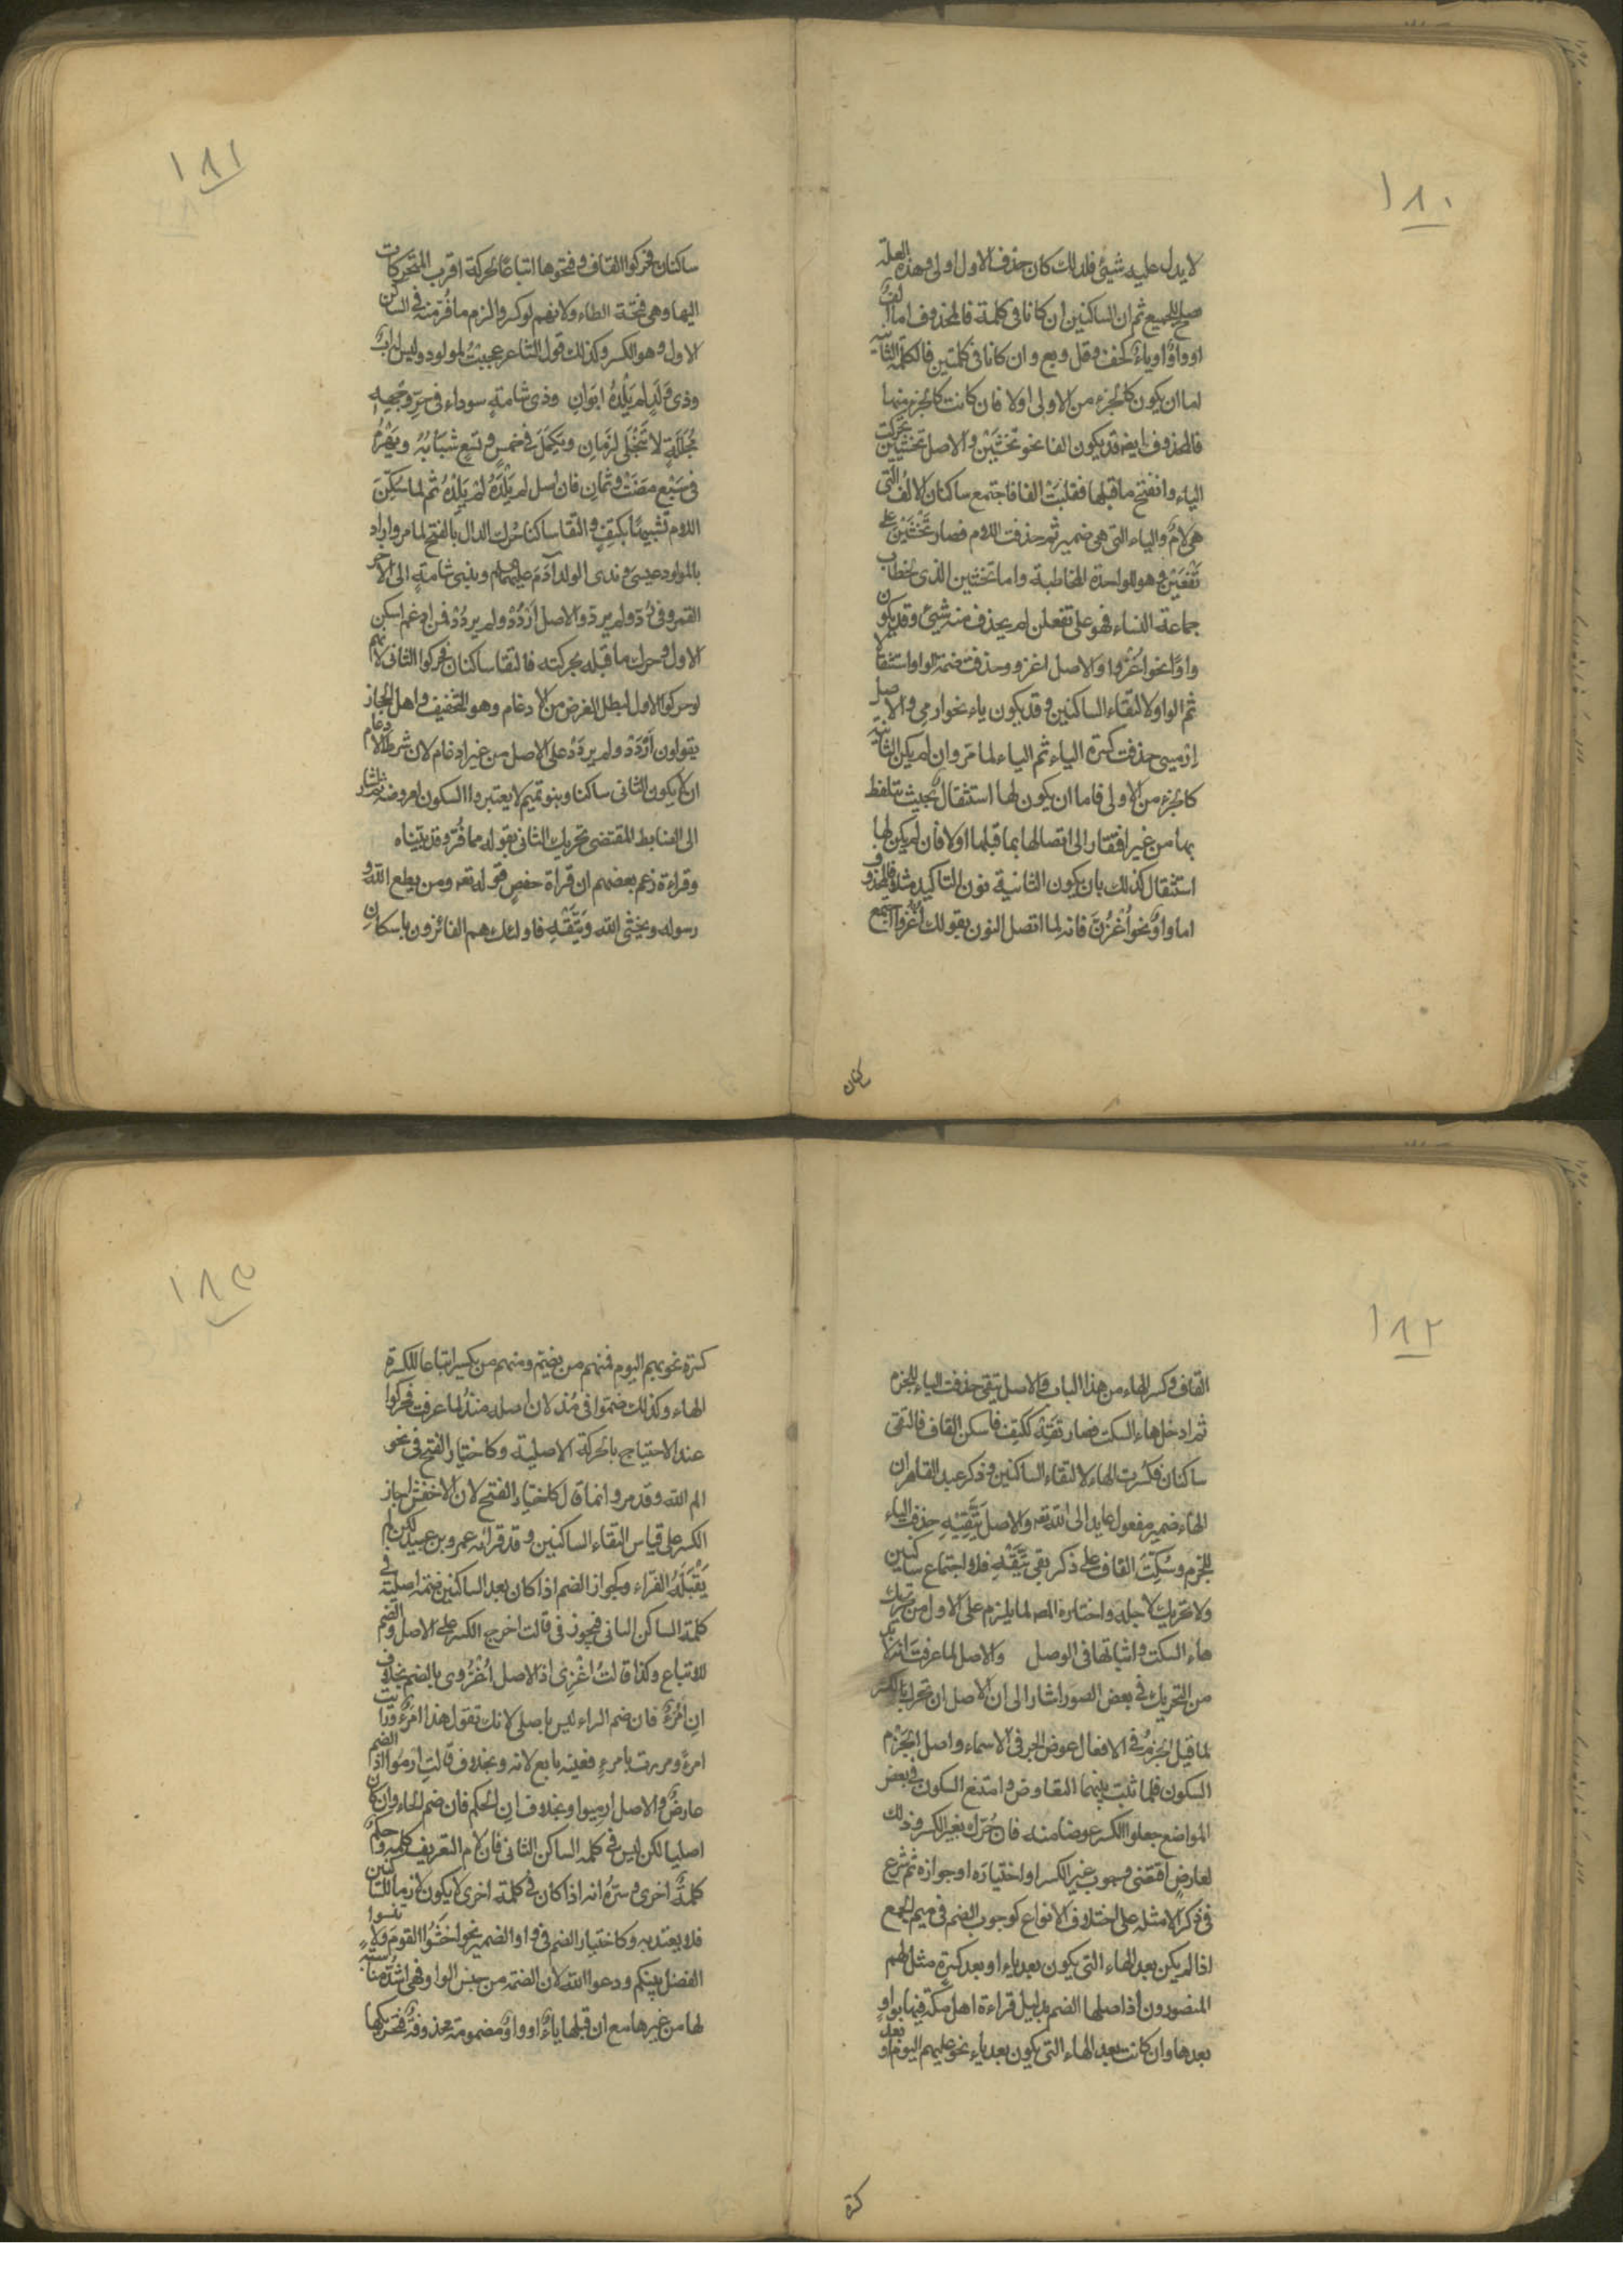 ١٨٠
لا يدل عليه شيئ فلذلك كان حذف الاول اولى وهذه العلة
صلح للجميع ثم ان الساكنين ان كانا فى كلمة فالمحذوف اما الف
او واو او ياء كخف وقل وبع وان كانا فى كلمتين فالكلمة الثانية
اما ان يكون كالجزء من الاولى اولا فان كانت كالجزء منها
فالمحذوف ايضا قد يكون الفا نحو تخشين والاصل تخشيين تحركت
الياء وانفتح ما قبلها فقلبت الفا فاجتمع ساكنان الالف التى
هى لام والياء التى هى ضمير ثم حذفت اللام فصار تخشين على
تفعين وهو للواحدة المخاطبة واما تخشين الذى لخطاب
جماعة النساء فهو على تفعلن لم يحذف منه شيئ وقد يكون
واوا نحو اغزوا والاصل اغزووا حذفت ضمة الواو استثقالا
ثم الواو لالتقاء الساكنين وقد يكون ياء نحو ارمى والاصل
ارميى حذفت كسرة الياء ثم الياء لما مر وان لم يكن الثانية
كالجزء من الاولى فاما ان يكون لها استثقال بحيث يتلفظ
بها من غير افتقار الى اتصالها بما قبلها اولا فان لم يكن لها
استثقال كذلك بان يكون الثانية نون التاكيد مثلا فالمحذوف
اما واو نحو اغزن فانه لما اتصل النون بقولك اغزوا اجتمع
كنان
١٨١
ساكنان فحركوا القاف وفتحوها اتباعا لحركة اقرب المتحركات
اليها وهى فتحة الطاء ولانهم لو كسروا لزم ما فر منه فى الساكن
الاول وهو الكسر وكذلك قول الشاعر عجبت لمولود وليس له اب
وذى ولد لم يلده ابوان وذى شامة سوداء فى حر وجهه
مجللة لا تنجلى لزمان ويكمل فى خمس وتسع شبابه ويهرم
فى سبع مضت وثمان فان اسل لم يلده لم يلده ثم لما سكن
اللام تشبيها بكتف والتقا ساكنا حرك الدال بالفتح لما مر واراد
بالمولود عيسى وبذى الولد آدم عليهما السلام وبذى شامة الى الآخر
القمر وفى رد ولم يرد والاصل اردد ولم يردد فمن ادغم اسكن
الاول وحرك ما قبله بحركته فالتقا ساكنان فحركوا الثانى لانهم
لو حركوا الاول لبطل الغرض من الادغام وهو التخفيف واهل الحجاز
يقولون اردد ولم يردد على الاصل من غير ادغام لان شرط الادغام
ان لا يكون الثانى ساكنا وبنو تميم لا يعتبروا السكون لعروضه ثم اشار
الى الضابط المقتضى تحريك الثانى بقوله مما فر وقد بيناه
وقراءة زعم بعضهم ان قراة حفص قوله تعه ومن يطع الله و
رسوله ويخشى الله ويتقه فاولئك هم الفائزون باسكان
١٨٢
القاف وكسر الهاء من هذا الباب والاصل يتقى حذفت الياء للجزم
ثم ادخل هاء السكت فصار تقه ككتف فاسكن القاف فالتقى
ساكنان فكسرت الهاء لالتقاء الساكنين وذكر عبد القاهر ان
الهاء ضمير مفعول عايد الى الله تعه والاصل يتقيه حذفت الياء
للجزم وسكنت القاف على ما ذكر بقى يتقه فلا اجتماع ساكنين
ولا تحريك لاجله واختاره المص لما يلزم على الاول من تحريك
هاء السكت واثباتها فى الوصل والاصل لما عرفت انه لا بد
من التحريك فى بعض الصور اشار الى ان الاصل ان تحرك بالكسر
لما قيل الجزم فى الافعال عوض الجر فى الاسماء واصل الجزم
السكون فلما ثبت بينهما التقاوض وامتنع السكون فى بعض
المواضع جعلوا الكسر عوضا منه فان حرك بغير الكسر وذلك
لعارض اقتضى وجوب غير الكسر او اختياره او جوازه ثم شرع
فى ذكر الامثلة على اختلاف الانواع كوجوب الضم فى ميم الجمع
اذا لم يكن بعد الهاء التى يكون بعد ياء او بعد كسرة مثل لهم
المنصورون اذ اصلها الضم بدليل قراءة اهل مكة فيها بواو
بعدها وان كانت بعد الهاء التى يكون بعد ياء نحو عليهم اليوم او بعد
كسرة
١٨٣
كسرة نحو بهم اليوم فمنهم من يضم ومنهم من يكسر اتباعا لكسرة
الهاء وكذلك ضموا فى مذ لان اصله منذ لما عرفت فحركوا
عند الاحتياج بالحركة الاصلية وكاختيار الفتح فى نحو
الم الله وقد مر وانما قال كاختيار الفتح لان الاخفش اجاز
الكسر على قياس التقاء الساكنين وقد قرا به عمرو بن عبيد لكن لم
يقبله القراء وكجواز الضم اذا كان بعد الساكنين ضمة اصلية فى
كلمة الساكن الثانى فيجوز فى قالت اخرج الكسر على الاصل والضم
للاتباع وكذا قالت اغزى اذ الاصل اغزوى بالضم بخلاف
ان امرؤ فان ضم الراء ليس باصلى لانك تقول هذا امرؤ ورايت
امرءا ومررت بامرء فعينه تابع لامه وبخلاف قالت ارموا اذ الضم
عارض والاصل ارميوا وبخلاف ان الحكم فان ضم الحاء وان كان
اصليا لكن ليس فى كلمة الساكن الثانى فان لام التعريف كلمة وحكم
كلمة اخرى وستره انه اذا كان فى كلمة اخرى لا يكون لازما للساكنين
فلا يعتد به وكاختيار الضم فى واو الضمير نحو اخشوا القوم ولا تنسوا
الفضل بينكم ودعوا الله لان الضمة من جنس الواو فهى اشد مناسبة
لها من غيرها مع ان قبلها ياء او واو مضمومة محذوفة فتحريكها